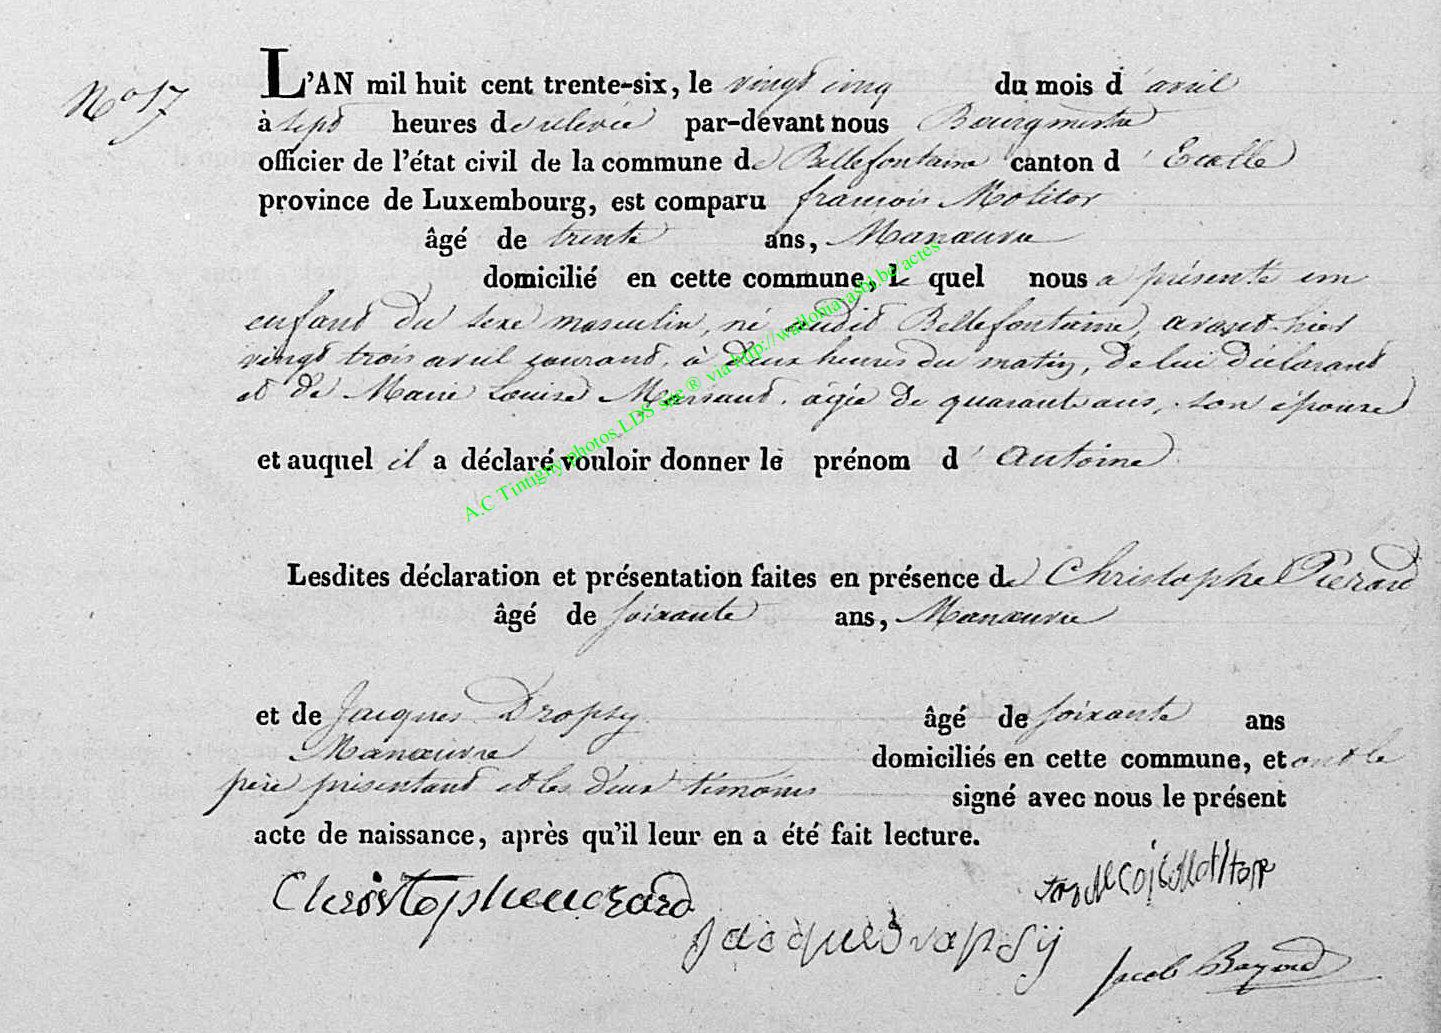 N° 17
L'AN mil huit cent trente-six, le vingt cinq du mois d'avril
à sept heures de relevée par-devant nous Bourgmestre
officier de l'état civil de la commune de Bellefontaine canton d'Etalle
province de Luxembourg, est comparu françois Molitor
âgé de trente ans, Manœuvre
domicilié en cette commune, le quel nous a présenté un
enfant du sexe masculin, né audit Bellefontaine, avant-hier
vingt trois avril courant, à deux heures du matin, de lui déclarant
et de Marie Louise Marsaud, agée de quarante ans, son épouse
et auquel il a déclaré vouloir donner le prénom d'Antoine
Lesdites déclaration et présentation faites en présence de Christophe Pierard
âgé de soixante ans, Manœuvre
et de Jacques Dropsy âgé de soixante ans
Manœuvre domiciliés en cette commune, et ont le
père présentant et les deux témoins signé avec nous le présent
acte de naissance, après qu'il leur en a été fait lecture.
A.C Tintigny photos LDS slc® via http://wallonia-asbl.be/actes